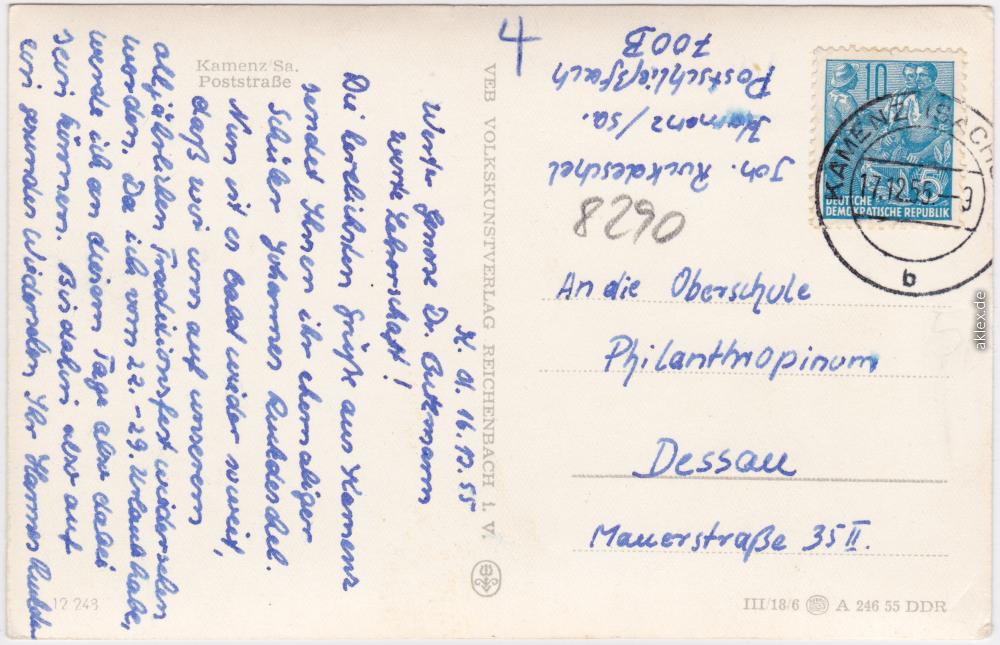 Kamenz/Sa.
Poststraße
K. d. 16.12.55
Werter Genosse Dr.
werte Lehrerschaft!
Die herzlichsten Grüße aus Kamenz
sendet Ihnen ihr ehemaliger
Schüler Johannes Ruckdeschel.
Nun ist es bald wieder soweit,
daß wir uns auf unserem
alljährlichen Traditionsfest wiedersehen
werden. Da ich vom 22.-29. Urlaub habe,
werde ich an diesem Tage also dabei
sein können. Bis dahin also auf
ein gesundes Wiedersehen Ihr Hannes
12 248
VEB VOLKSKUNSTVERLAG REICHENBACH i. V.
4
Joh. Ruckdeschel
Kamenz/Sa.
Postschließfach
700B
8290
10
+5
DEUTSCHE
DEMOKRATISCHE REPUBLIK
KAMENZ (SACHS
17.12.55
b
An die Oberschule
Philanthropinum
Dessau
Mauerstraße 35 II.
III/18/6 A 246 55 DDR
aklex.de